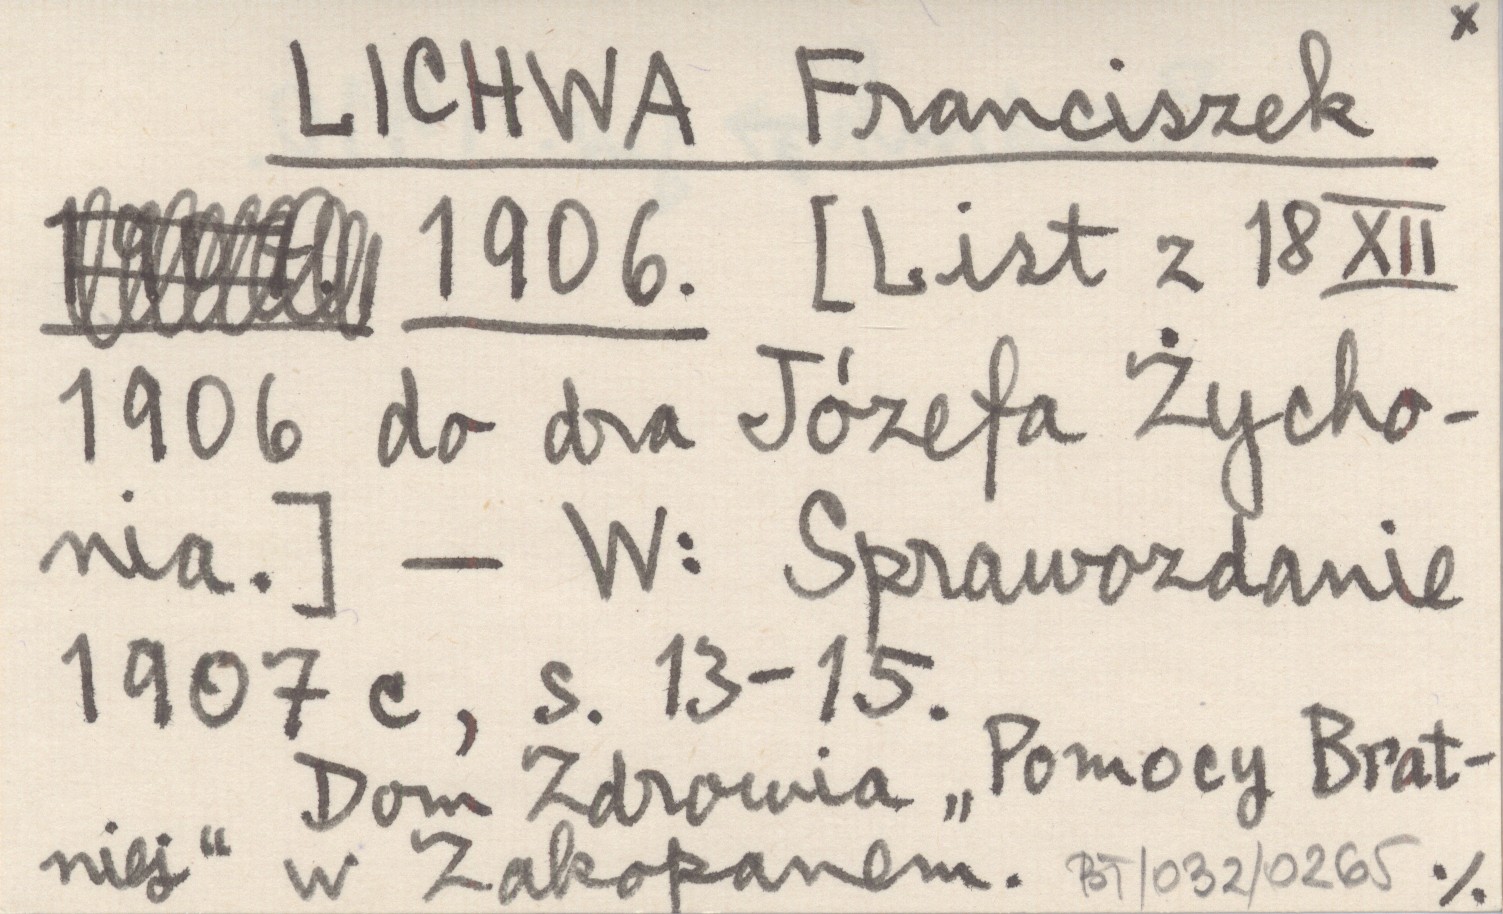 x
LICHWA Franciszek
1906. [List z 18 XII
1906 do dra Józefa Życho-
nia.] — W: Sprawozdanie
1907 c, s. 13-15.
Dom Zdrowia „Pomocy Brat-
niej“ w Zakopanem. BT/032/0265 ./.